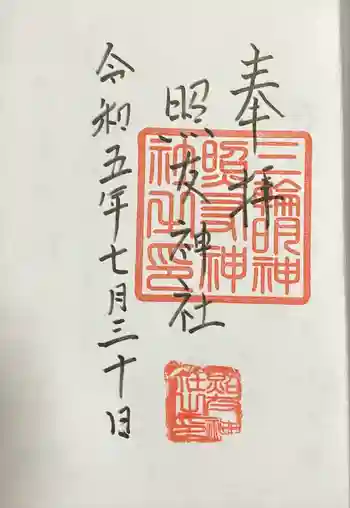 奉拝
照友神社
令和五年七月三十日
三輪明神
照友神
社之印